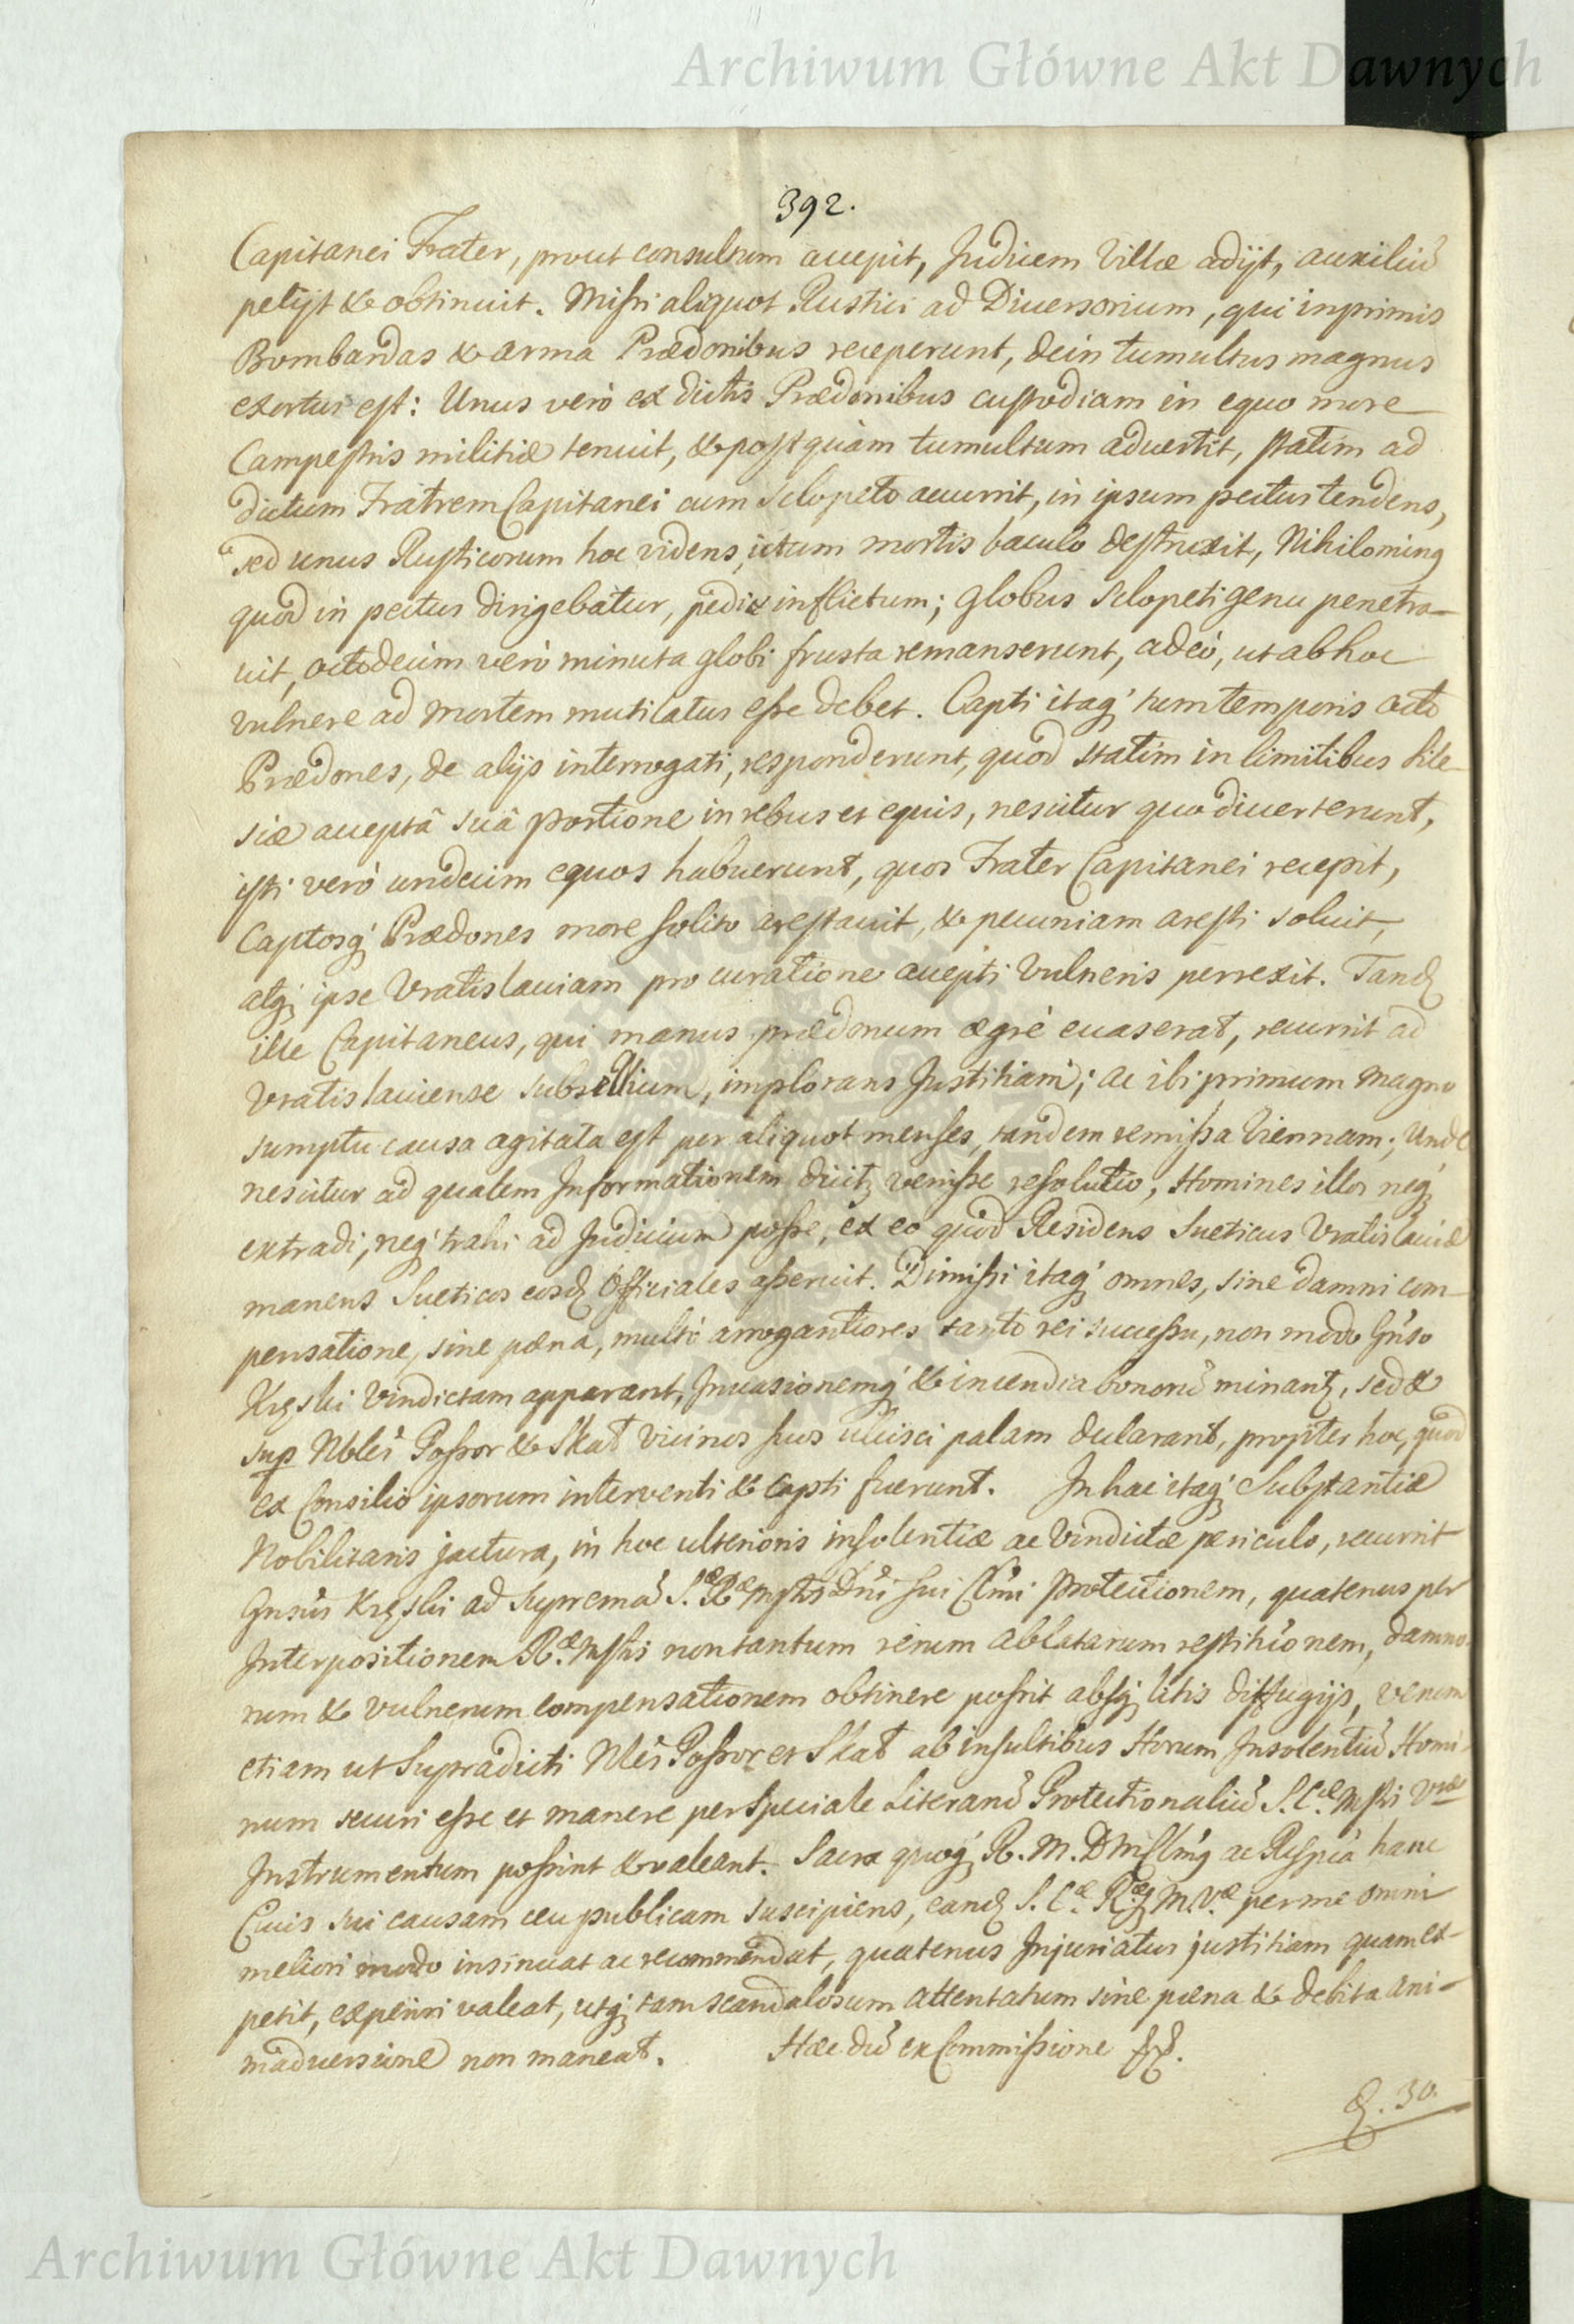 Archiwum Główne Akt Dawnych
392.
Capitanei Frater, prout consultum accepit, Judicem Villæ adijt, auxiliũ
petijt & obtinuit. Missi aliquot Rustici ad Diversorium, qui inprimis
Bombardas & arma Prædonibus receperunt, dein tumultus magnus
exortus est: Unus verò ex dictis Prædonibus custodiam in equo more
Campestris militiæ tenuit, & postquàm tumultum advertit, statim ad
dictum Fratrem Capitanei cum sclopeto accurrit, in ipsum pectus tendens,
sed unus Rusticorum hoc videns, ictum mortis baculo destruxit, Nihilominq
quod in pectus dirigebatur, pedi inflictum; globus sclopeti genu penetra-
uit, octodecim verò minuta globi frusta remanserunt, adeò, ut ab hoc
vulnere ad mortem mutilatus esse debet. Capti itaq́ tum temporis octo
Prædones, de alijs interrogati, responderunt, quod statim in limitibus Sile-
siæ acceptâ suâ portione in rebus et equis, nescitur quo diverterunt,
isti verò undecim equos habuerunt, quos Frater Capitanei recepit,
Captosq́ Prædones more solito arestauit, & pecuniam aresti soluit,
atq́ ipse Vratislauiam pro curatione accepti vulneris perrexit. Tandẽ
ille Capitaneus, qui manus prædonum ægrè euaserat, recurrit ad
Vratislauiense subsellium, implorans Justitiam; ac ibi primum magno
sumptu causa agitata est per aliquot menses, tandem remissa Viennam; Unde
nescitur ad qualem Informationem dicitz venisse resolutio, Homines illos neq́
extradi, neq́ trahi ad Judicium posse, ex eo quod Residens Sueticus Vratislauiæ
manens Sueticos eosdẽ Officiales asseruit. Dimissi itaq́ omnes, sine damni com-
pensatione, sine pæna, multò arrogantiores tanto rei successu, non modo Gñso
Kręski Vindictam apparant, Invasionemq́ & incendia bonorũ minantz, sed &
sup Nbles Possor & Skat vicinos suos ulcisci palam declarant, propter hoc, quod
ex Consilio ipsorum interventi & capti fuerunt. In hac itaq́ Substantiæ
Nobilitaris jactura, in hoc ulterioris insolentiæ ac Vindictæ periculo, recurrit
Gnsũs Kręski ad Supremã S. Ræ Mstis Dñi sui Clmi Protectionem, quatenus per
Interpositionem Ræ Mstis non tantum rerum ablatarum restitũonem, damno-
rum & vulnerum compensationem obtinere possit absq́ litis diffugijs, verum
etiam ut Supradicti Nles Possor et Skat ab insultibus Horum Insolentiũ Homi-
num securi esse et manere per Speciale Literarũ Protectionaliũ S. Cæ Msti Vræ
Instrumentum possint & valeant. Sacra quoq́ R. M. D Clmq ac Respca hanc
Civis sui causam ceu publicam suscipiens, eandẽ S. Cæ M Væ per me omni
meliori modo insinuat ac recommendat, quatenus Injuriatus justitiam quam ex-
petit, experiri valeat, utq́ tam scandalosum attentatum sine pæna & debita ani-
madversione non maneat. Hæc dũ ex Commissione
30.
Archiwum Główne Akt Dawnych